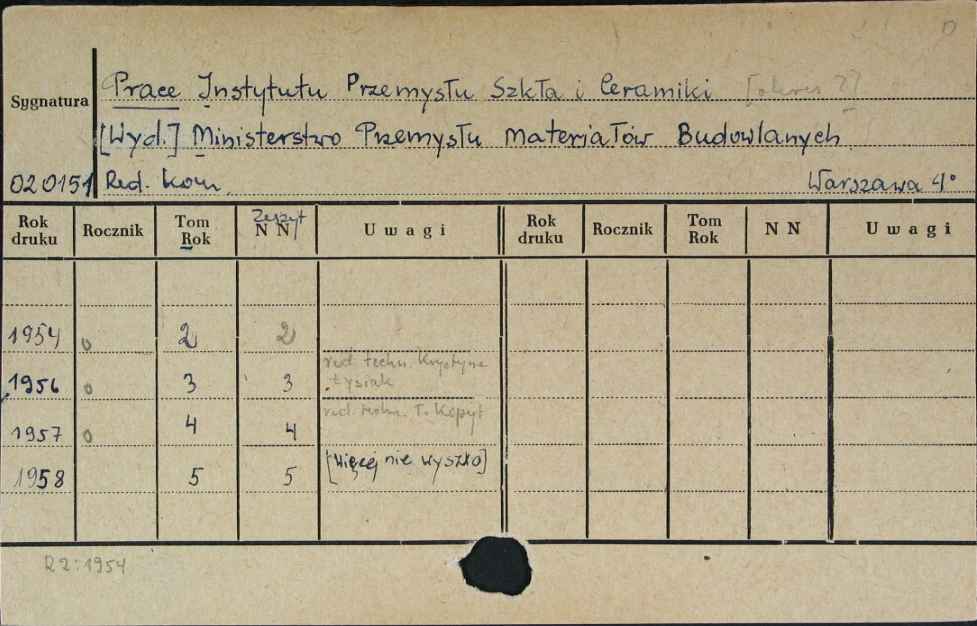 Prace Instytutu Przemysłu Szkła i Ceramiki [okres ?]
Sygnatura
[Wyd.] Ministerstwo Przemysłu Materiałów Budowlanych
020151 Red. kom. Warszawa 4°
Rok druku Rocznik Tom Rok Zeszyt N N Uwagi Rok druku Rocznik Tom Rok N N Uwagi
1954 0 2 2
1956 0 3 3 red. techn. Krystyna Łysiak
1957 0 4 4 red. T. Kopyt
1958 5 5 [Więcej nie wyszło]
R2:1954